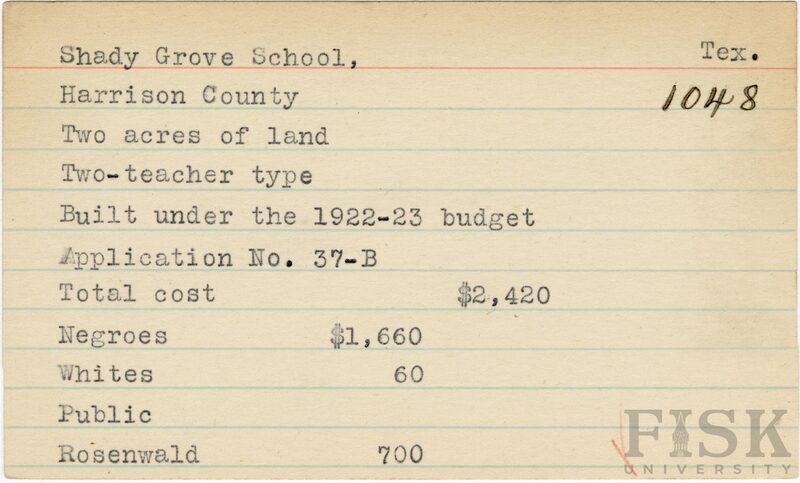 Shady Grove School, Tex.
Harrison County 1048
Two acres of land
Two-teacher type
Built under the 1922-23 budget
Application No. 37-B
Total cost $2,420
Negroes $1,660
Whites 60
Public
Rosenwald 700
FISK
UNIVERSITY